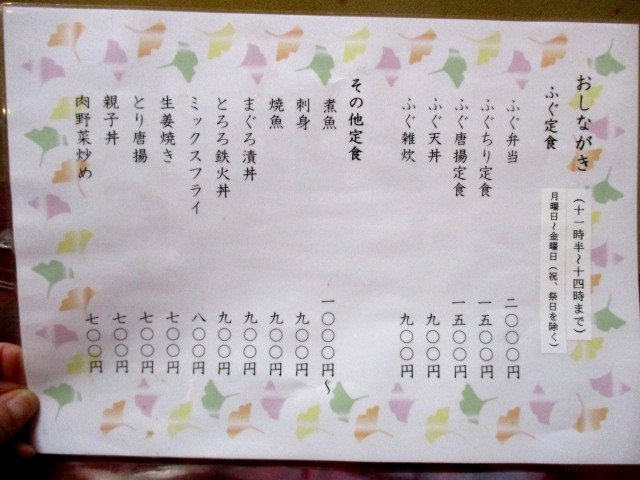 おしながき
（十一時半～十四時まで）
月曜日～金曜日（祝、祭日を除く）
ふぐ定食
ふぐ弁当　二〇〇〇円
ふぐちり定食　一五〇〇円
ふぐ唐揚定食　一五〇〇円
ふぐ天丼　九〇〇円
ふぐ雑炊　九〇〇円
その他定食
煮魚　一〇〇〇円～
刺身　九〇〇円
焼魚　九〇〇円
まぐろ漬丼　九〇〇円
とろろ鉄火丼　九〇〇円
ミックスフライ　八〇〇円
生姜焼き　七〇〇円
とり唐揚　七〇〇円
親子丼　七〇〇円
肉野菜炒め　七〇〇円